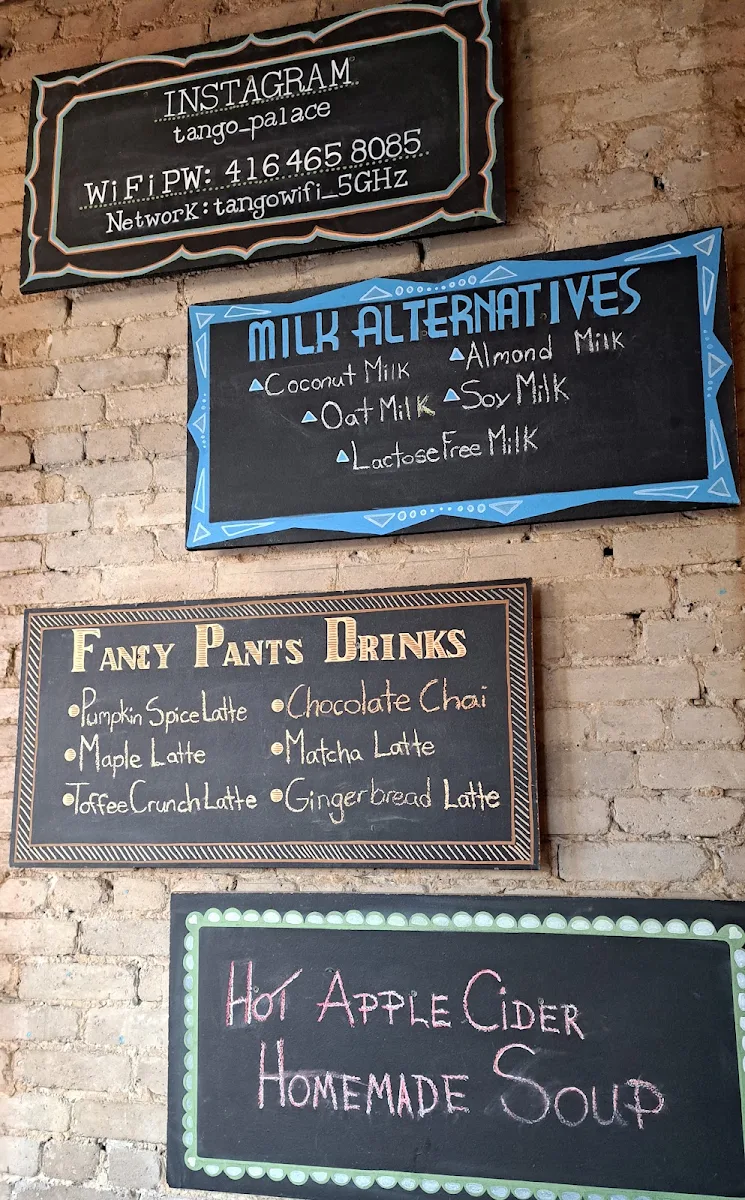 INSTAGRAM
tango_palace
WiFi PW: 416 465 8085
Network: tangowifi_5GHz
MILK ALTERNATIVES
Coconut Milk
Almond Milk
Oat Milk
Soy Milk
Lactose Free Milk
FANCY PANTS DRINKS
Pumpkin Spice Latte
Chocolate Chai
Maple Latte
Matcha Latte
Toffee Crunch Latte
Gingerbread Latte
HOT APPLE CIDER
HOMEMADE SOUP